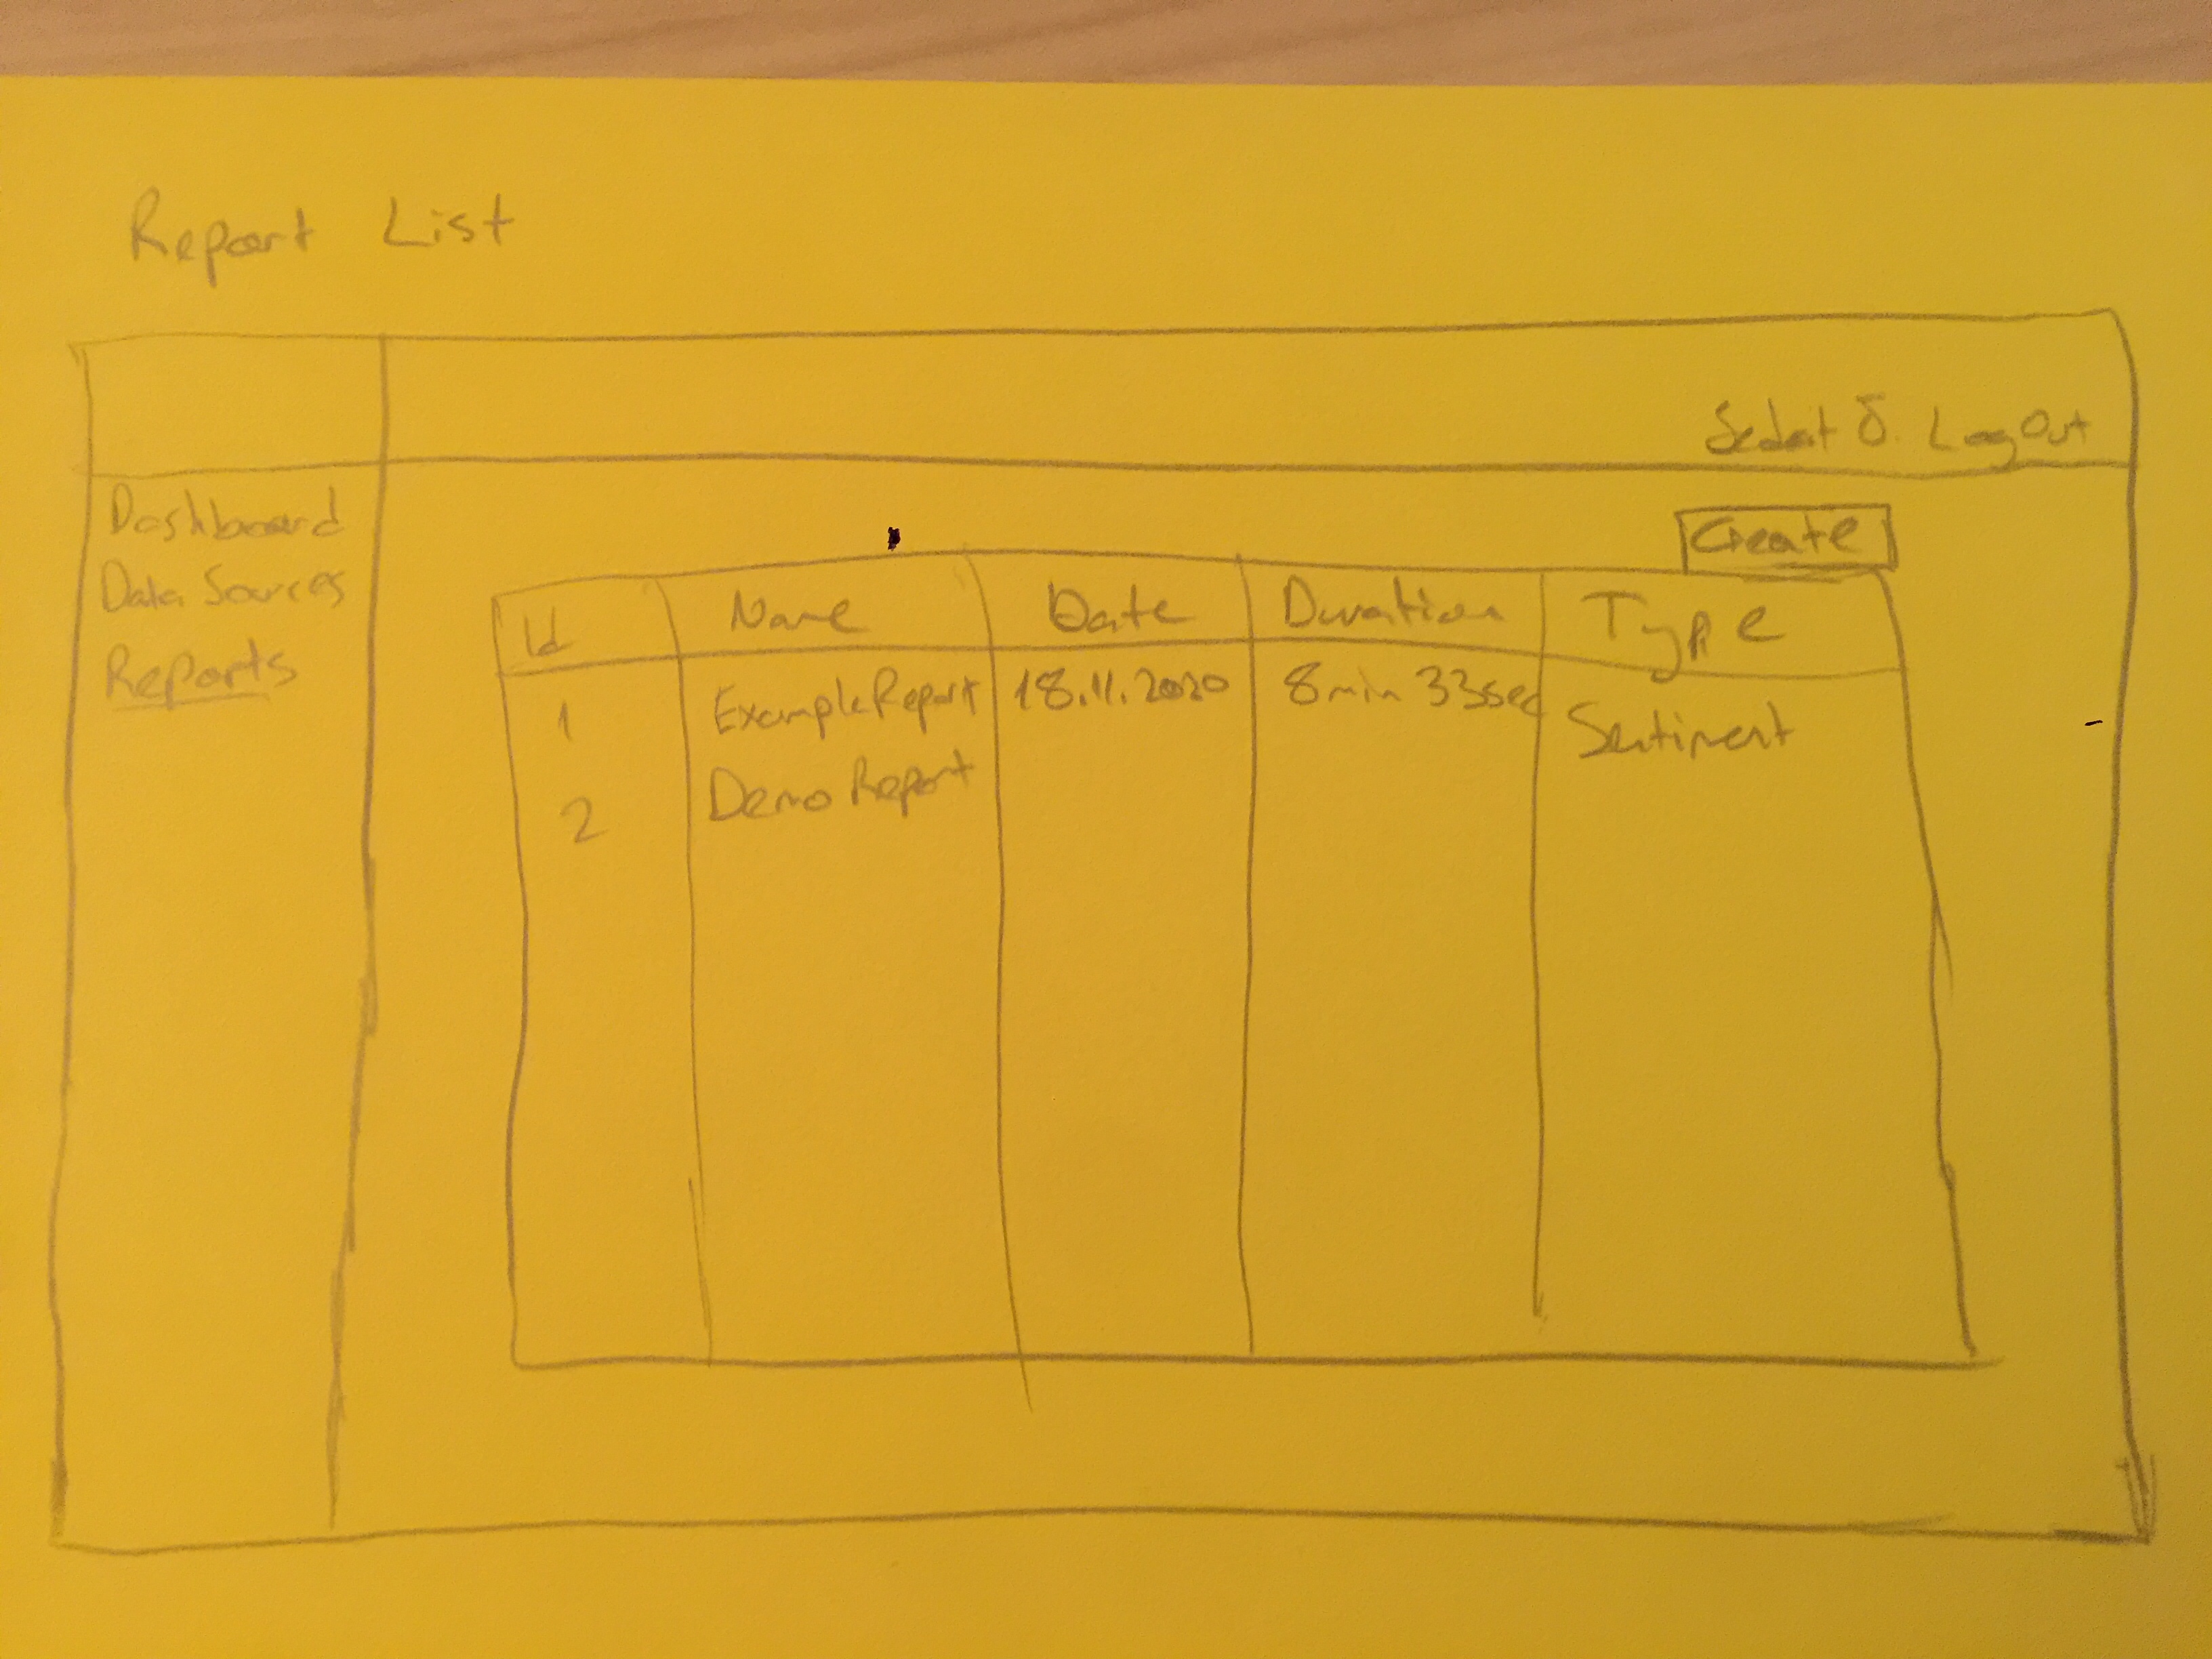 Report List
Sedat Ö. LogOut
Dashboard
Data Sources
Reports
Create
Id Name Date Duration Type
1 Example Report 18.11.2020 8min 33sec Sentiment
2 Demo Report